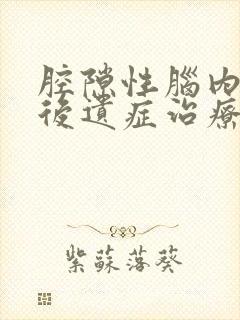 腔隙性腦内
後遺症治療
紫蘇落葵